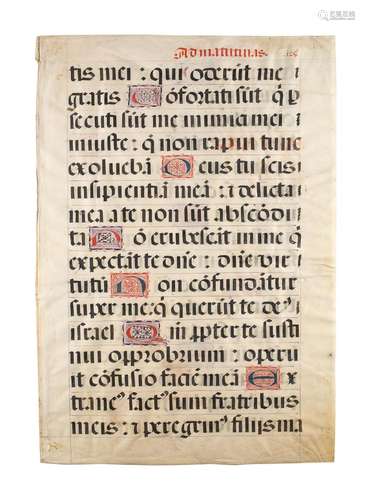 Ad matutinas
tis mei : qui oderūt me
gratis Cōfortati sūt q̄ p
secuti sūt me inimici mei
iniuste : q̄ non rapui tunc
exoluebā Deus tu scis
insipientiā meā : ⁊ delicta
mea a te non sūt abscōdi
ta Nō erubescāt in me q̄
expectāt te dn̄e : dn̄e vir
tutū Non cōfundātur
super me q̄ querūt te deꝰ
israel Qm̄ ꝓpter te susti
nui opprobrium : operu
it cōfusio faciē meā Ex
traneꝰ factꝰ sum fratribus
meis : ⁊ peregrinꝰ filijs ma